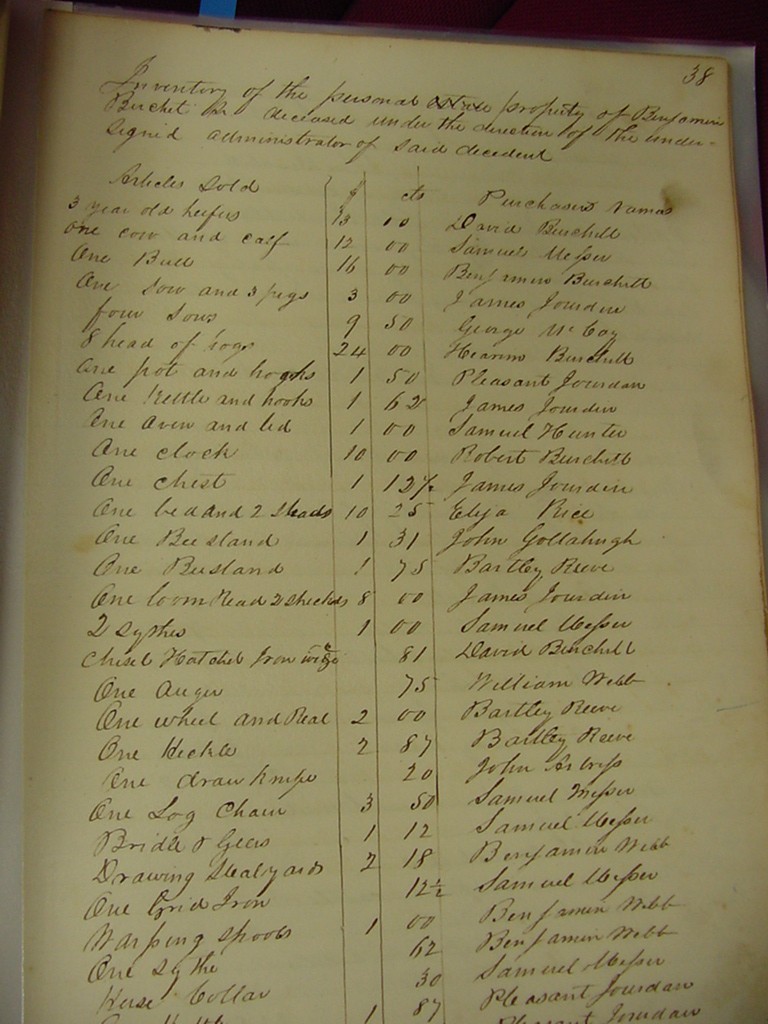 38
Inventory of the personal estate property of Benjamin
Burchet deceased under the direction of the under=
signed administrator of said decedent
Articles Sold $ cts Purchasers names
3 year old heifers 13 00 David Burchett
one cow and calf 12 00 Samuel Messer
One Bull 16 00 Benjamin Burchett
One sow and 3 pigs 3 00 James Jourdin
four sows 9 50 George McCoy
8 head of hogs 24 00 Burchett
One pot and hooks 1 50 Pleasant Jourdan
One Kettle and hooks 1 62 James Jourdin
One oven and led 1 00 Samuel Hunter
One clock 10 00 Robert Burchett
One chest 1 12½ James Jourdin
One bed and 2 Steads 10 25 Elija Rice
One Bee stand 1 31 John Gollahugh
One Beestand 1 75 Bartley Reeve
One loom 8 00 James Jourdin
2 sythes 1 00 Samuel Messer
Chisel Hatchel Iron wedge 81 David Burchett
One Auger 75 William Webb
One wheel and Real 2 00 Bartley Reeve
One Heckle 2 87 Bartley Reeve
One draw knife 20 John
One Log Chain 3 50 Samuel Messer
Bridle & Gears 1 12 Samuel Messer
Drawing Stealyards 2 18 Benjamin Webb
One Grid Iron 12½ Samuel Messer
Warping spools 1 00 Benjamin Webb
One sythe 62 Benjamin Webb
Horse Collar 30 Samuel Messer
One 1 87 Pleasant Jourdan
Pleasant Jourdan